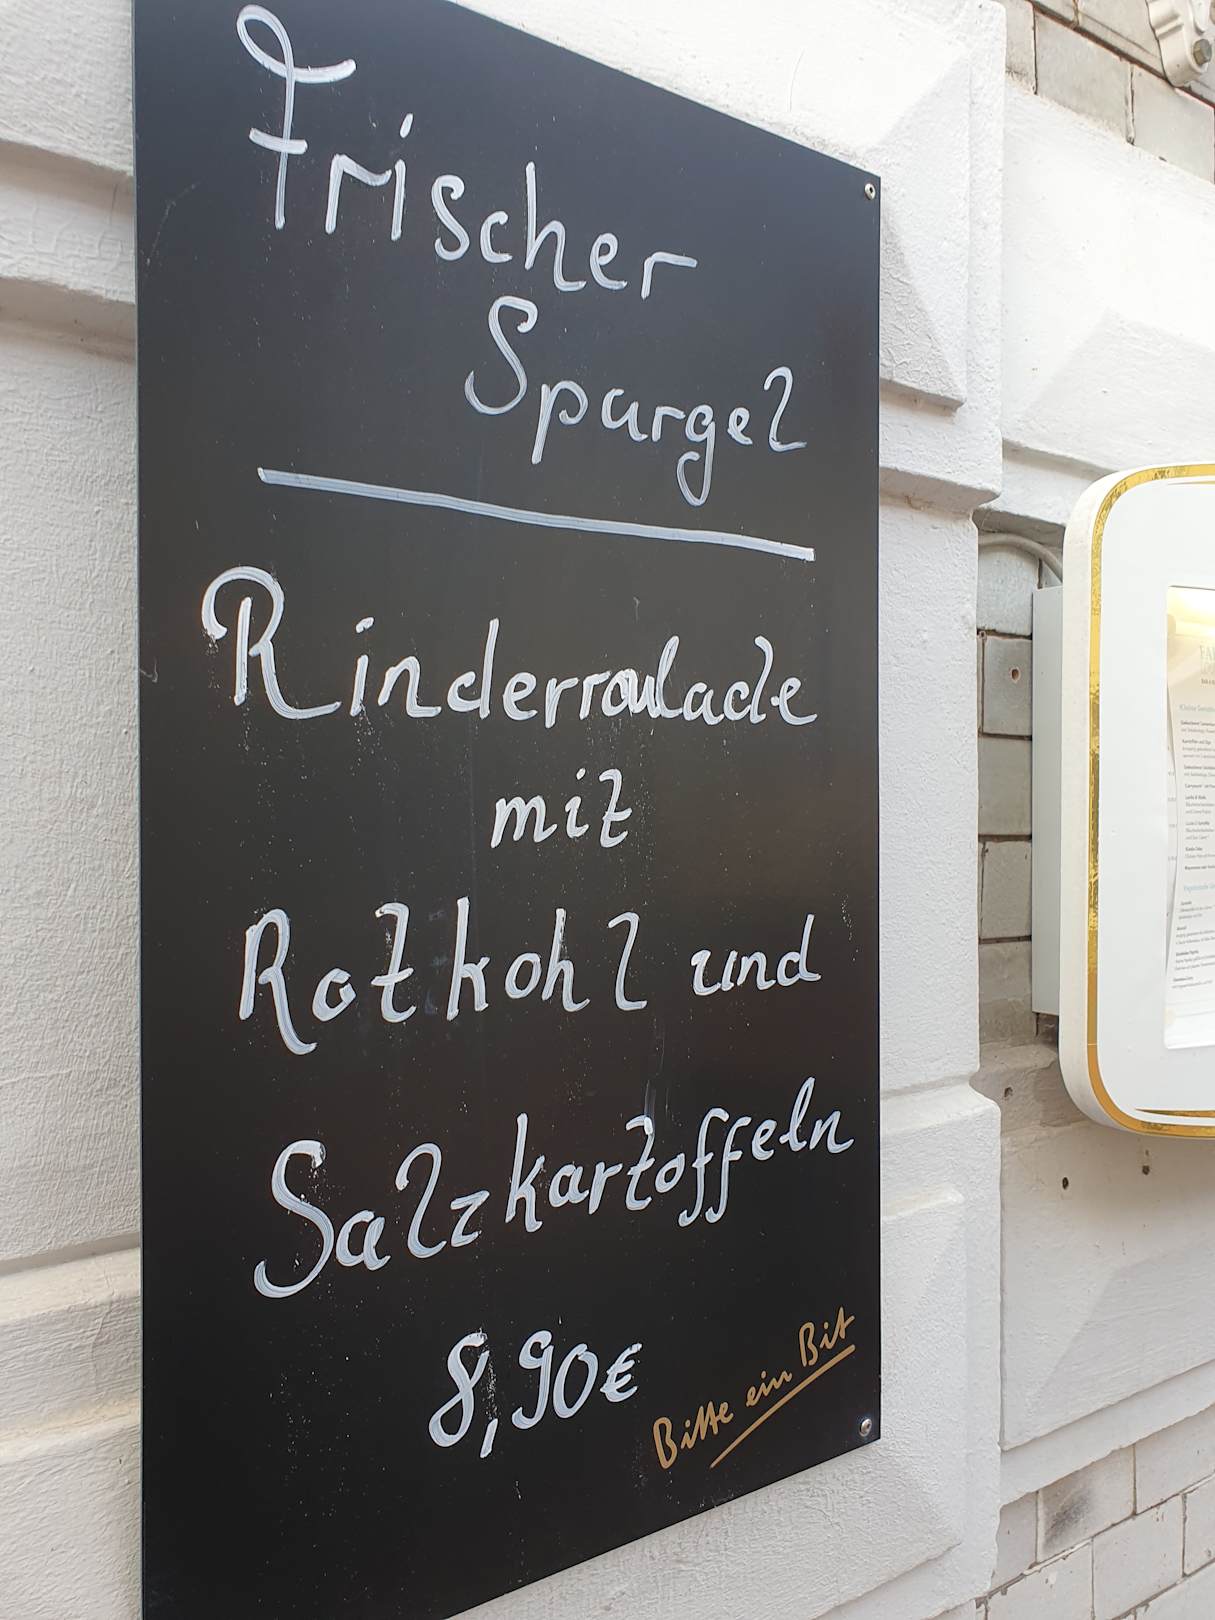 Frischer
Spargel
Rinderroulade
mit
Rotkohl und
Salzkartoffeln
8,90€
Bitte ein Bit